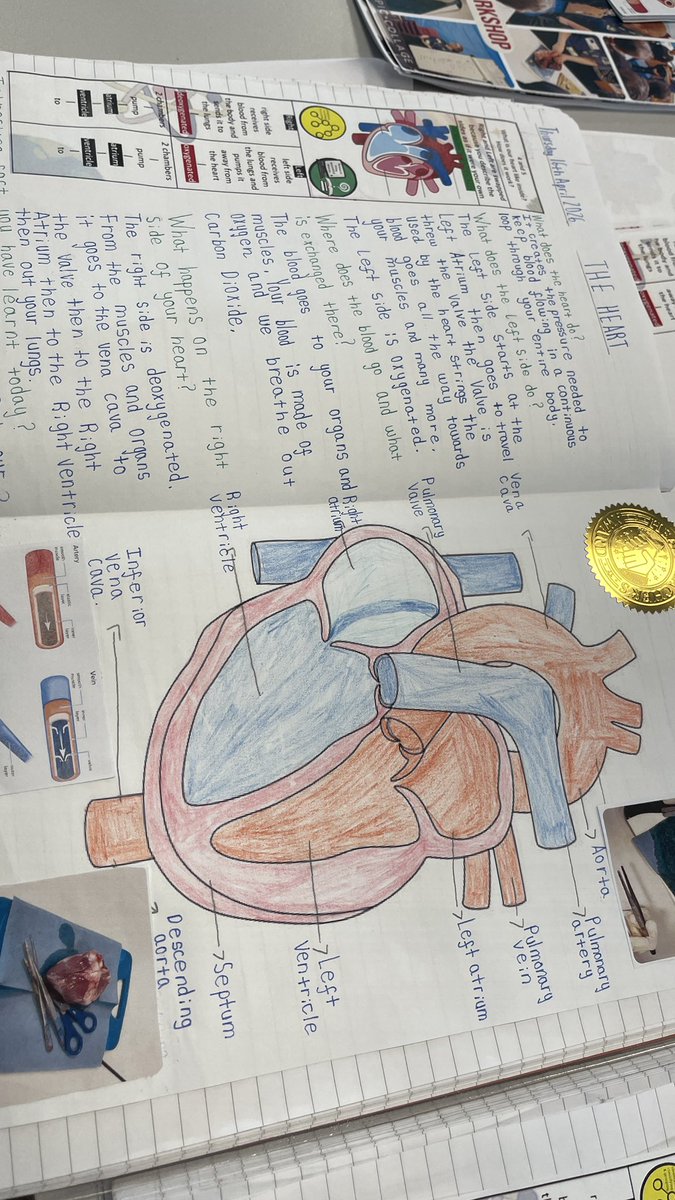 Thursday 16th April 2026
THE HEART
What does the heart do?
It creates the pressure needed to
keep blood flowing in a continuous
loop through your entire body.
What does the left side do?
The Left side starts at the
Left Atrium then goes to travel
threw the valve. The Valve is
used by the heart strings
blood goes all the way towards
your muscles and many more.
The Left side is oxygenated.
Where does the blood go and what
is exchanged there?
The blood goes to your organs and
muscles. Your blood is made of
oxygen and we breathe out
Carbon Dioxide.
What happens on the right
side of your heart?
The right side is deoxygenated.
From the muscles and organs
it goes to the vena cava to
the valve then to the Right
Atrium then to the Right Ventricle
then out your lungs.
you have learnt today?
Right
right side
receives
blood from
the body and
sends it to
the lungs
deoxygenated
2 chambers
pump
atrium
to
ventricle
Left
left side
receives
blood from
the lungs and
pumps it
away from
the heart
oxygenated
2 chambers
pump
atrium
to
ventricle
Vena
cava
Pulmonary
valve
Right
atrium
Right
ventricle
Inferior
vena
cava.
Aorta
Pulmonary
artery
Pulmonary
vein
Left atrium
Left
ventricle
Septum
Descending
aorta
Artery
Vein
RKSHOP
PIC•COLLAGE